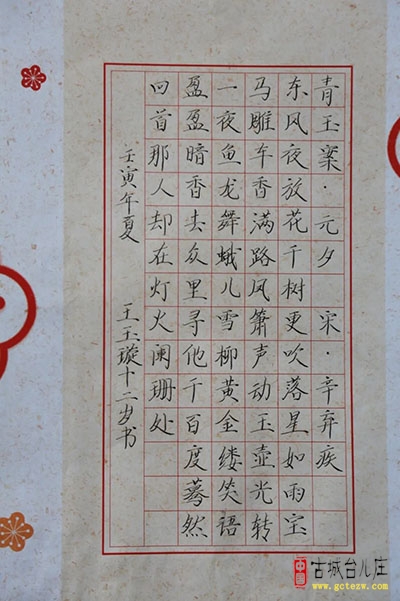 青玉案·元夕 宋·辛弃疾
东风夜放花千树更吹落星如雨宝
马雕车香满路凤箫声动玉壶光转
一夜鱼龙舞蛾儿雪柳黄金缕笑语
盈盈暗香去众里寻他千百度蓦然
回首那人却在灯火阑珊处
壬寅年夏 王玉璇十二岁书
中国 古城台儿庄
www.gctezw.com